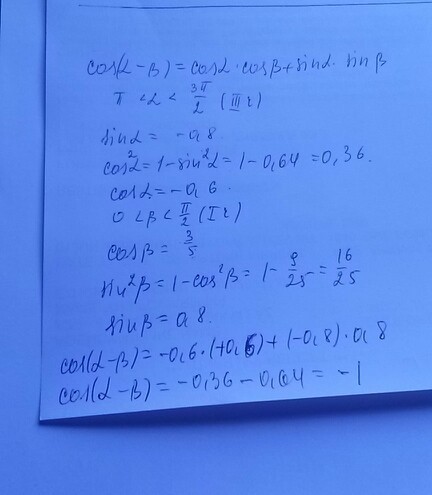 cos(α-β) = cosα·cosβ + sinα·sinβ
π < α < 3π/2 (III г)
sinα = -0,8
cos²α = 1-sin²α = 1-0,64 = 0,36.
cosα = -0,6.
0 < β < π/2 (I г)
cosβ = 3/5
sin²β = 1-cos²β = 1- 9/25 = 16/25
sinβ = 0,8.
cos(α-β) = -0,6·(+0,6)+(-0,8)·0,8
cos(α-β) = -0,36-0,64 = -1